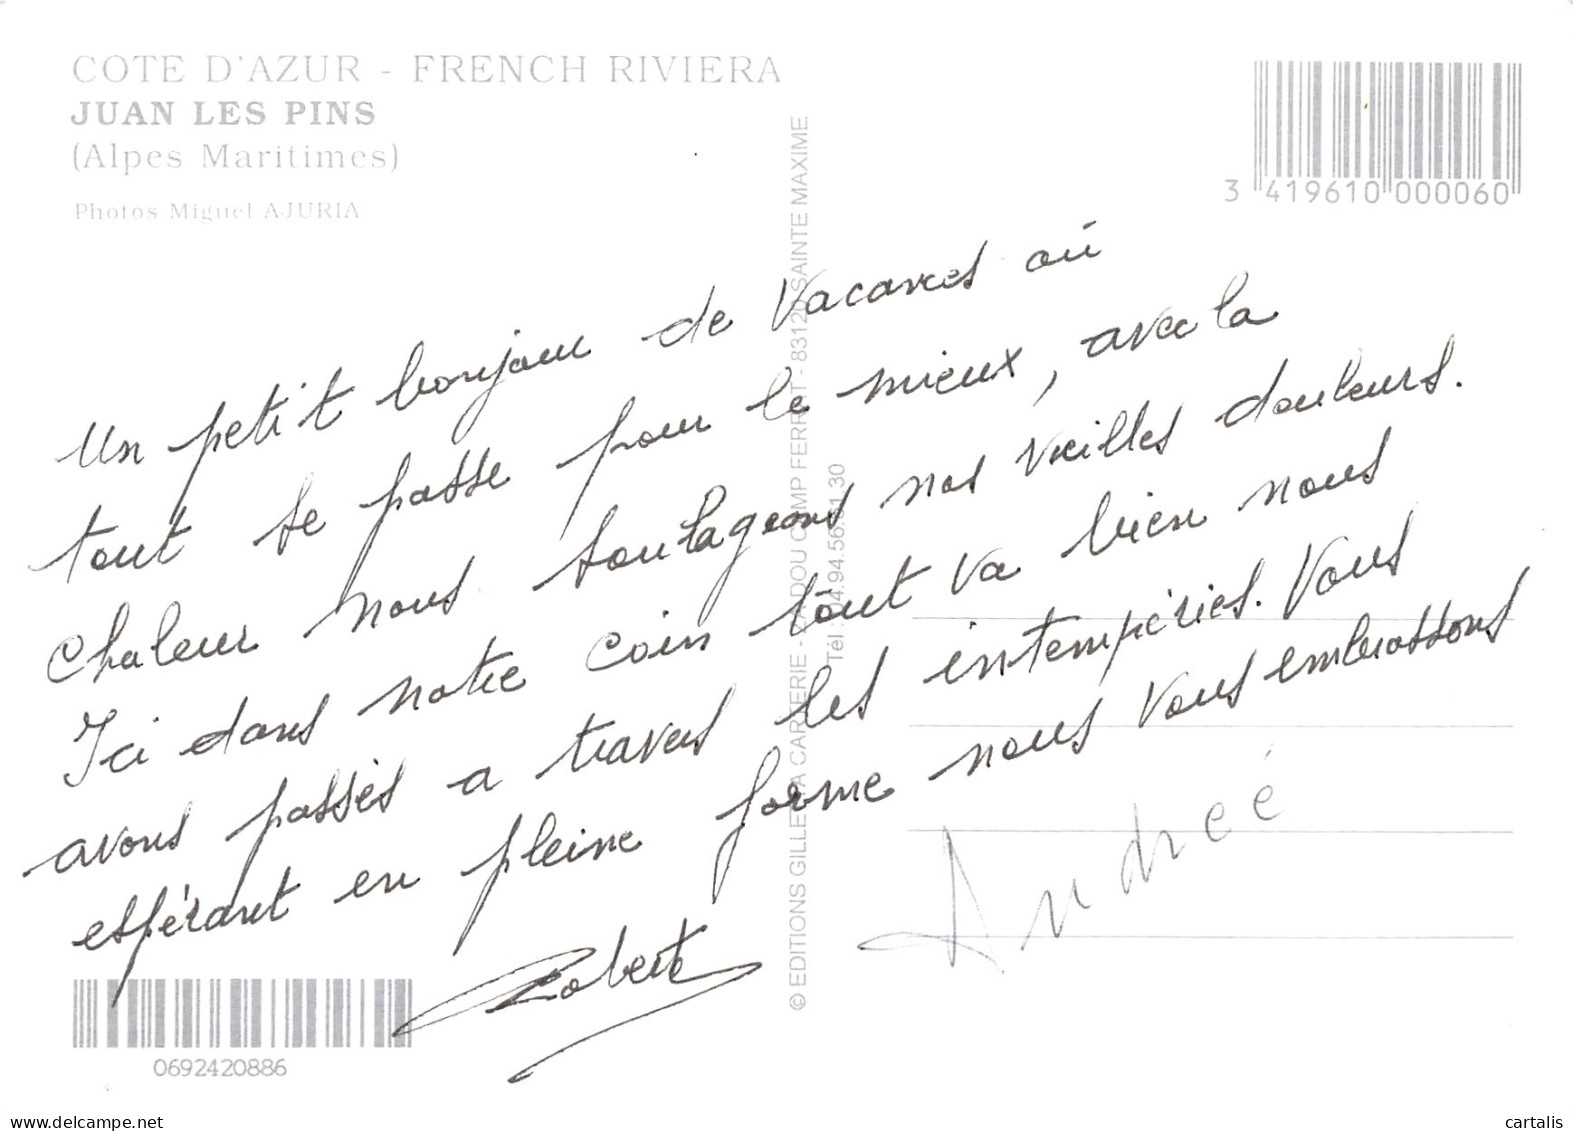 COTE D'AZUR - FRENCH RIVIERA
JUAN LES PINS
(Alpes Maritimes)
Photos Miguel AJURIA
3 419610 000060
Un petit bonjour de Vacances où
tout se passe pour le mieux, avec la
chaleur nous soulageons nos vieilles douleurs.
Ici dans notre coin tout va bien nous
avons passés a travers les intempéries. Vous
espérant en pleine forme nous vous embrassons
Robert
Andreé
© EDITIONS GILLETTA CARTERIE - ZA DOU CAMP FERRAT - 83120 SAINTE MAXIME
0692420886
delcampe.net
cartalis